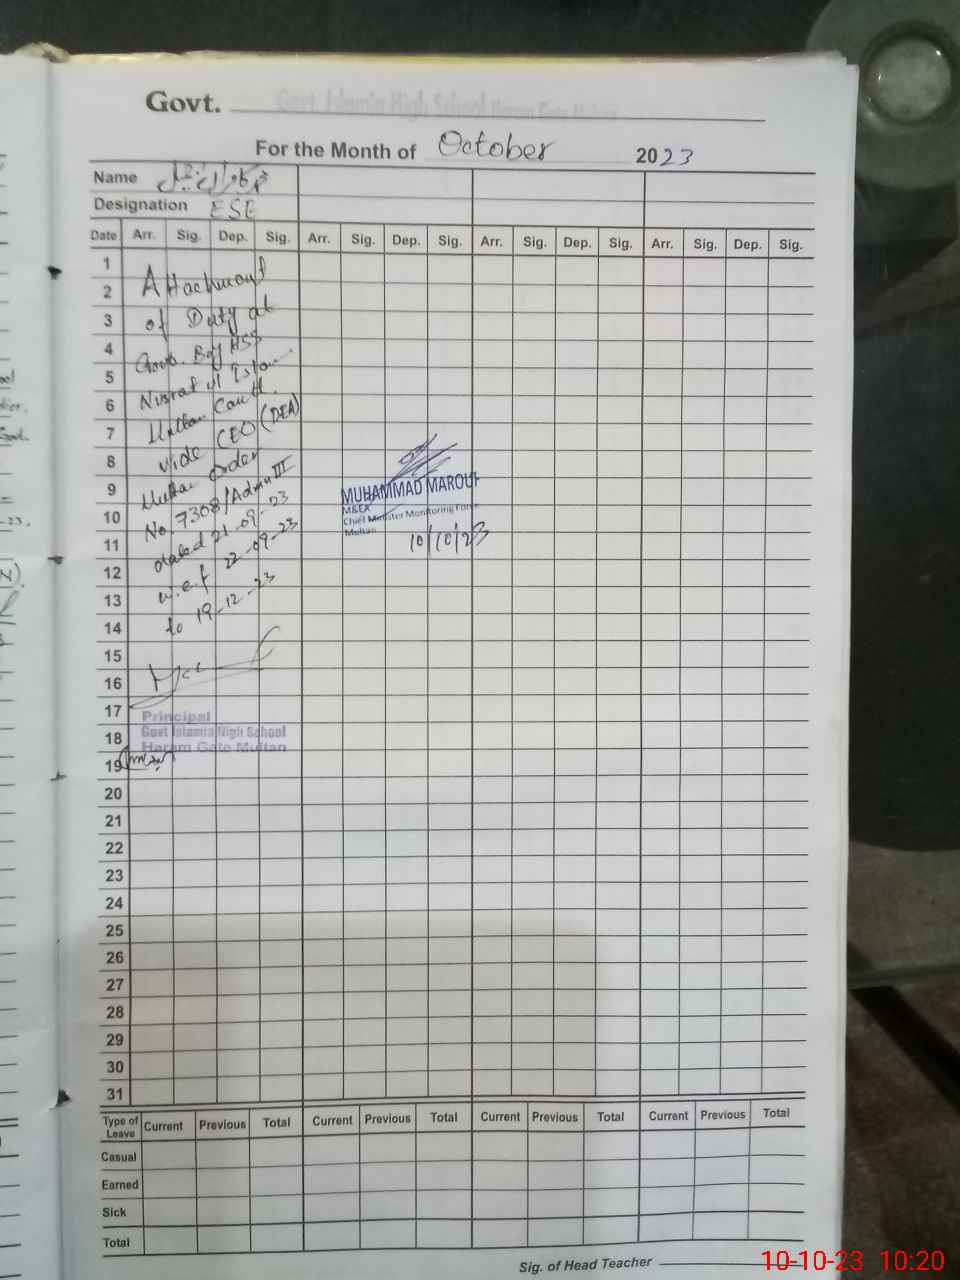 Govt. Govt. Islamia High School Haram Gate Multan
For the Month of October 2023
Name
Designation ESE
Date Arr. Sig. Dep. Sig. Arr. Sig. Dep. Sig. Arr. Sig. Dep. Sig. Arr. Sig. Dep. Sig.
1
2 Attachment
3 of Duty at
4 Govt. Boy HSS
5 Nusrat ul Islam
6 Multan Cantt.
7 vide CEO (DEA)
8 Multan Order
9 No. 7308/Admn III
10 dated 21-09-23
11 w.e.f 22-09-23
12 to 19-12-23
13
14
15
16
17
18
19
20
21
22
23
24
25
26
27
28
29
30
31
MUHAMMAD MAROUF
M&EA
Chief Minister Monitoring Force
Multan
10/10/23
Principal
Govt Islamia High School
Haram Gate Multan
Type of Leave Current Previous Total Current Previous Total Current Previous Total Current Previous Total
Casual
Earned
Sick
Total
Sig. of Head Teacher
10-10-23 10:20